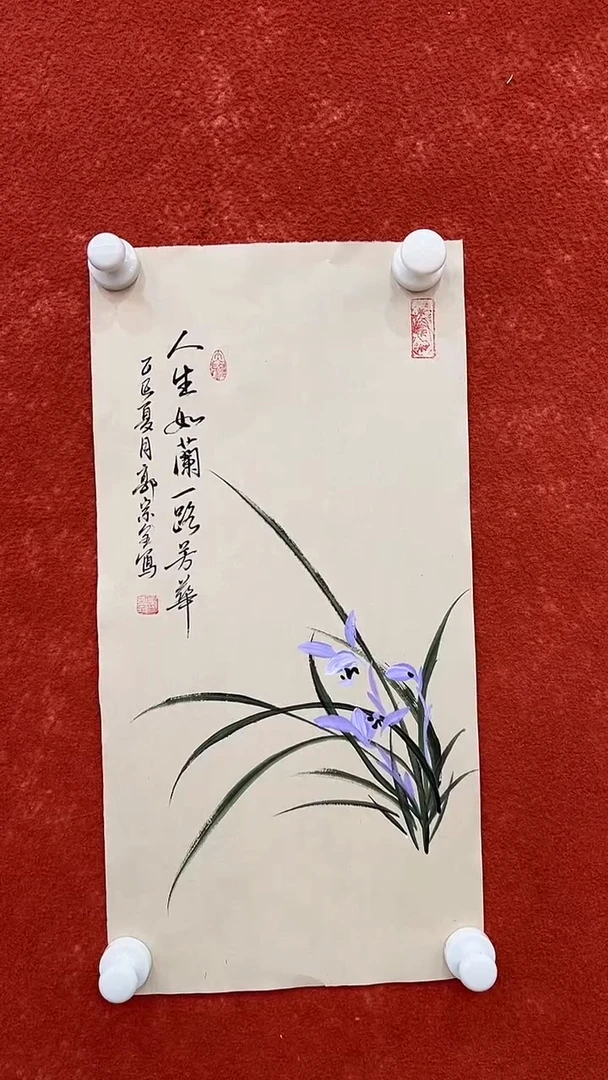 人生如蘭一路芳華
乙巳夏月郭宗全寫